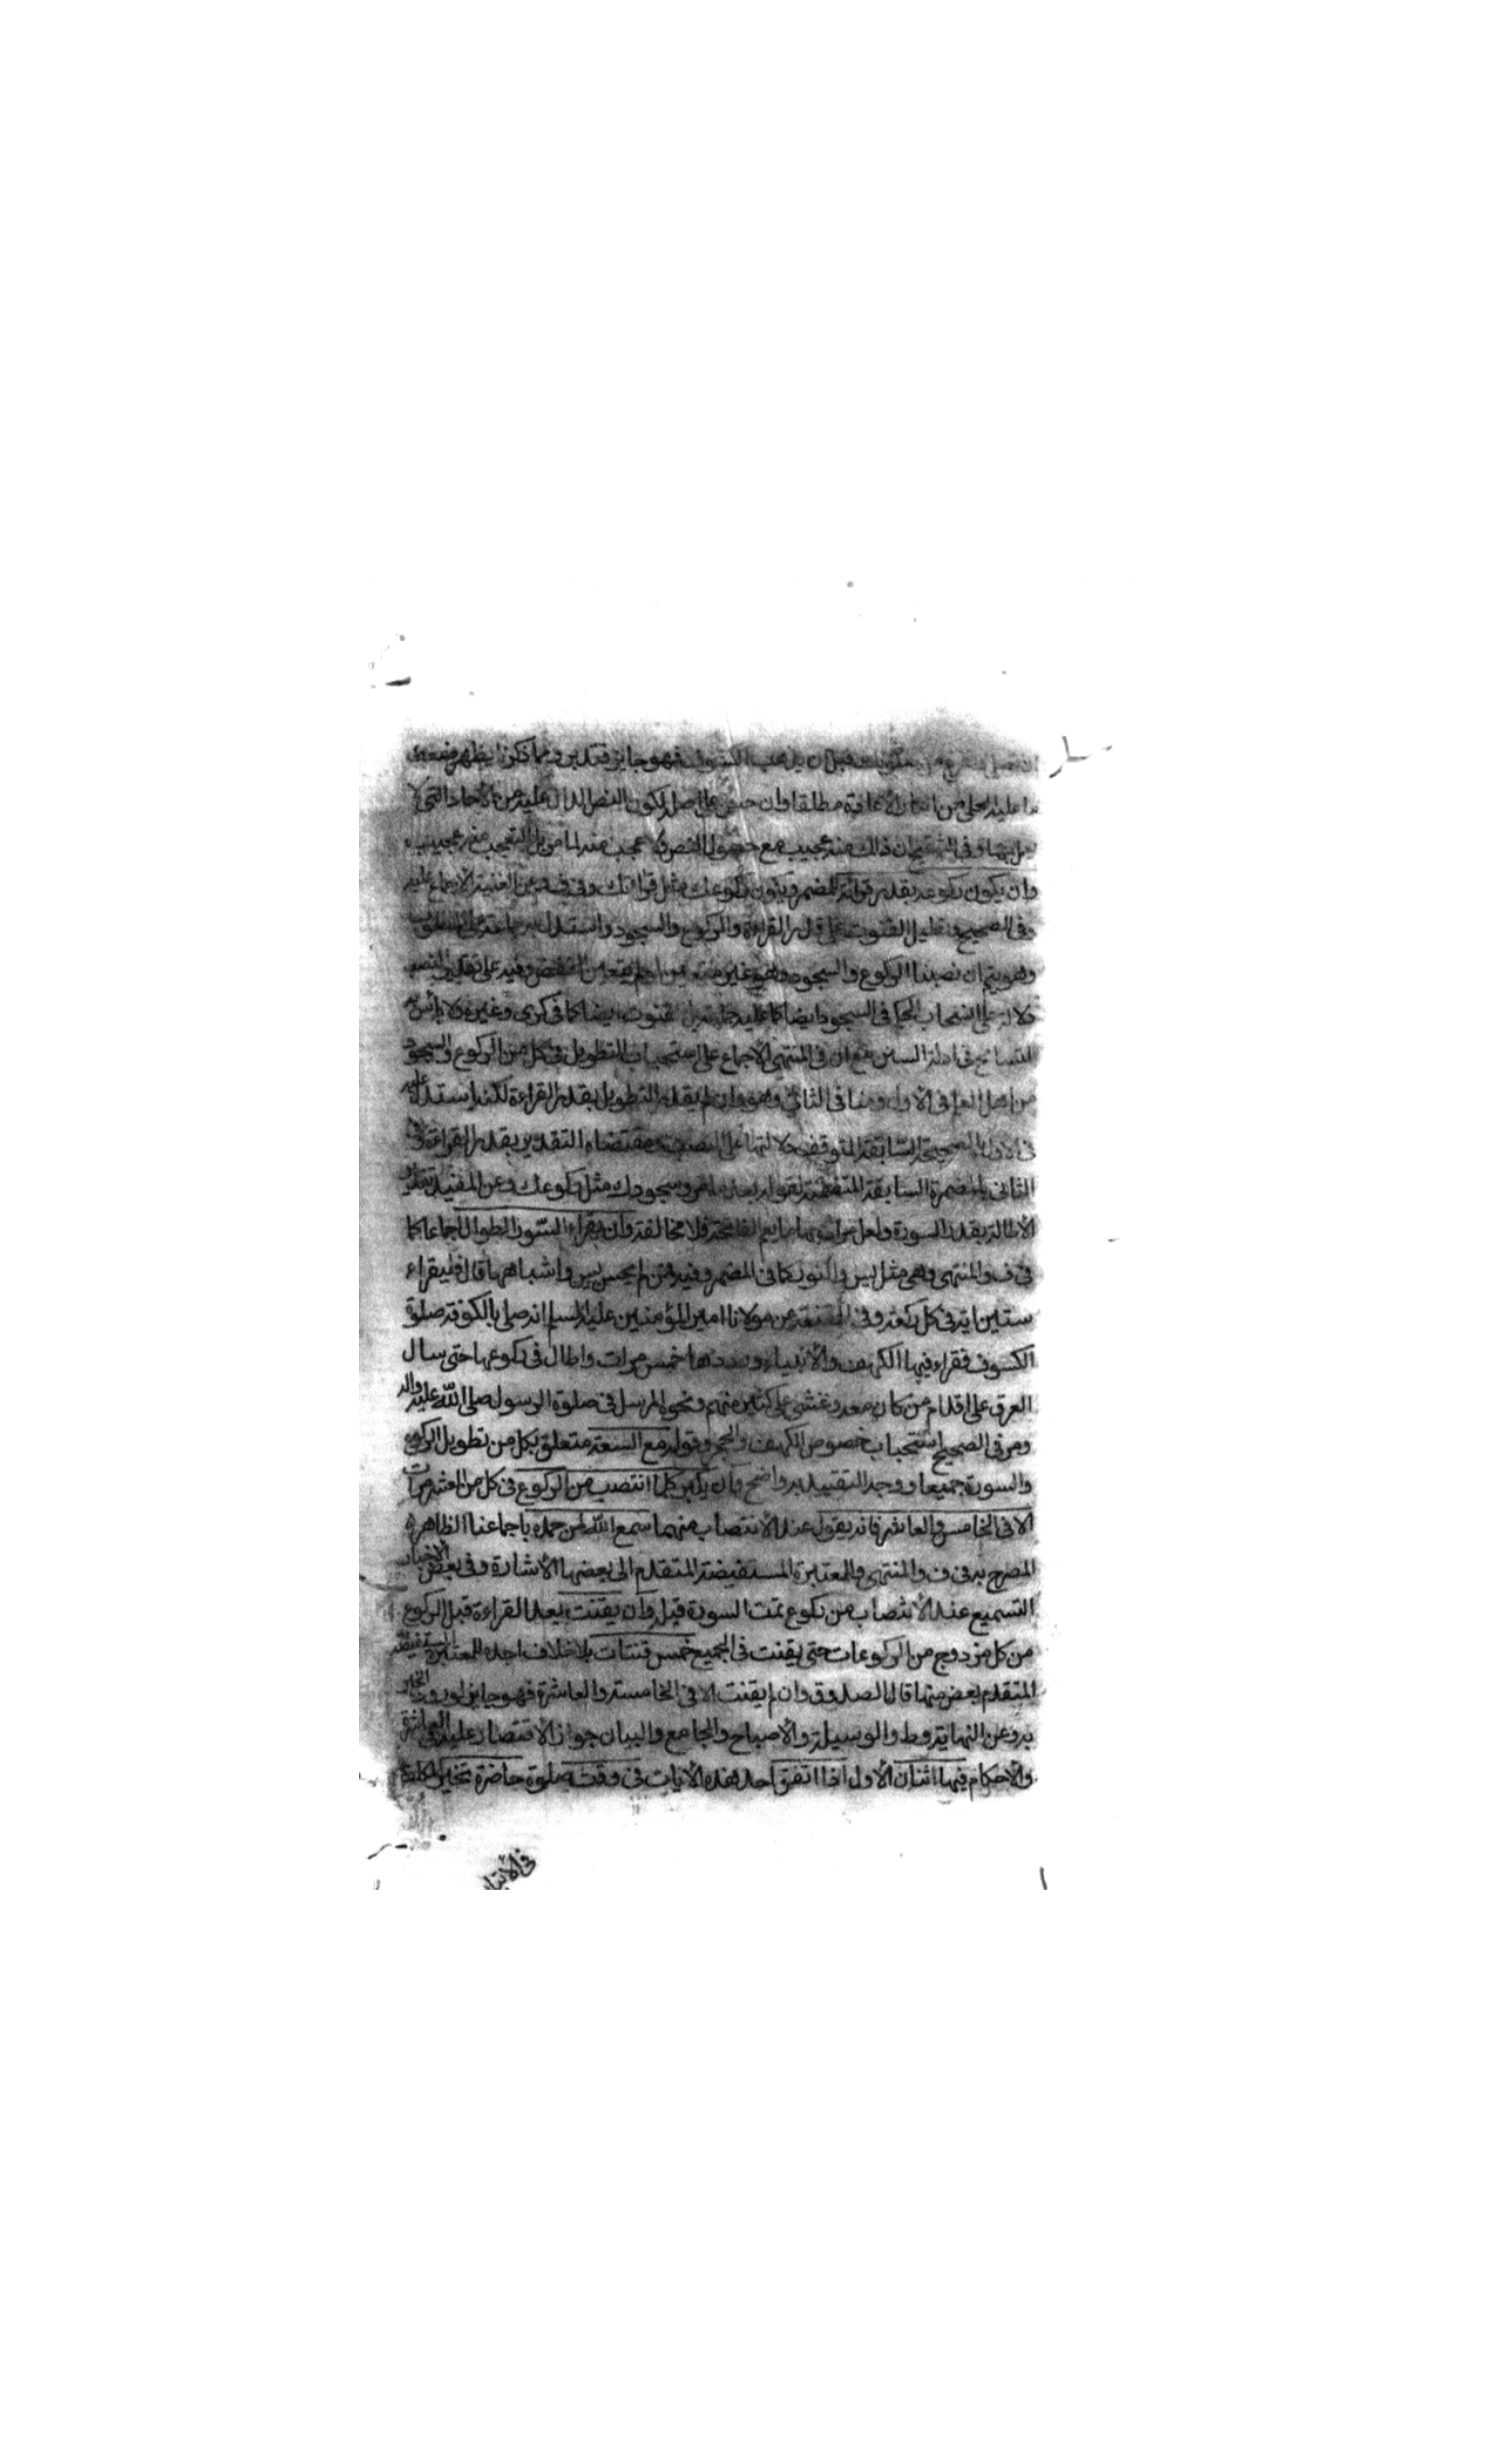 قبل ان يذهب الكسوف فهو جايز فتدبر ومما ذكرنا يظهر ضعف
ما عليه الحلى من انكار الاعادة مطلقا وان حسن على اصله لكون النص الدال عليه من الاحاد التى لا
يعمل بها وفى ان ذلك منه عجيب مع حصول النص ولا عجب منه لما مر بل التعجب منه عجيب
وان يكون ركوعه بقدر قرائته للمضمر ويكون ركوعك مثل قرائتك وفى ف وعن الغنية الاجماع عليه
وفى الصحيح وتطيل القنوت على قدر القراءة والركوع والسجود واستدل به جماعة على المطلوب
وهو يتم ان نصبنا الركوع والسجود وهو غير متعين ان لم يتعين الخفض وفيه على تقدير النصب
دلالة على استحباب الحكم فى السجود ايضا كما عليه جماعة بل القنوت ايضا كما فى كرى وغيره ولا بأس به
للتسامح فى ادلة السنن مع ان فى المنتهى الاجماع على استحباب التطويل فى كل من الركوع والسجود
من اهل العلم فى الاول ومنا فى الثانى وهو وان لم يقدر التطويل بقدر القراءة لكنه استدل عليه
فى الاول بالصحيحة السابقة المتوقف دلالتها على النصب ومقتضاه التقدير بقدر القراءة وفى
الثانى بالمضمرة السابقة المتضمنة لقوله بعد ما مر وسجودك مثل ركوعك وعن المفيد تقدير
الاطالة بقدر السورة ولعل مراده بها ما يعم الفاتحة فلا مخالفة وان يقراء السور الطوال اجماعا كما
فى ف والمنتهى وهى مثل يس والنور كما فى المضمر وفيه فمن لم يحسن يس واشباهها قال فليقراء
ستين اية فى كل ركعة وفى المقنعة عن مولانا امير المؤمنين عليه السلم انه صلى بالكوفة صلوة
الكسوف فقراء فيها الكهف والانبياء ورددها خمس مرات واطال فى ركوعها حتى سال
العرق على اقدام من كان معه وغشى على كثير منهم ونحوه المرسل فى صلوة الرسول صلى الله عليه واله
ومر فى الصحيح استحباب خصوص الكهف والحجر وقوله مع السعة متعلق بكل من تطويل الركوع
والسورة جميعا ووجه التقييد به واضح وان يكبر كلما انتصب من الركوع فى كل من العشر مرات
الا فى الخامس والعاشر فانه يقول عند الانتصاب منهما سمع الله لمن حمده باجماعنا الظاهر
المصرح به فى ف والمنتهى والمعتبرة المستفيضة المتقدم الى بعضها الاشارة وفى بعض الاخبار
التسميع عند الانتصاب من ركوع تمت السورة قبله وان يقنت بعد القراءة قبل الركوع
من كل مزدوج من الركوعات حتى يقنت فى الجميع خمس قنتات بلا خلاف اجده للمعتبرة المستفيضة
المتقدم بعض منها قال الصدوق وان لم يقنت الا فى الخامسة والعاشرة فهو جايز لورود الخبر
به وعن النهاية وط والوسيلة والاصباح والجامع والبيان جواز الاقتصار عليه فى العاشرة
والاحكام فيها اثنان الاول اذا اتفق احد هذه الايات فى وقت صلوة حاضرة تخير المكلف